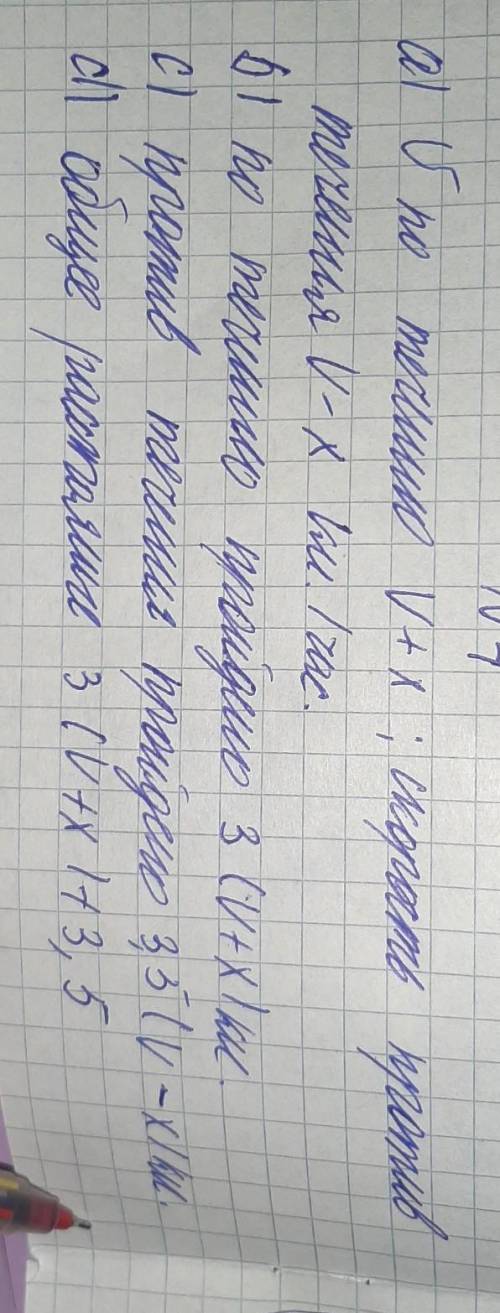 N 7
a) V по течению V + x ; скорость против
течения V - x км. / час.
b) по течению пройдено 3 (V + x) км.
c) против течения пройдено 3,5 (V - x) км.
d) общее расстояние 3 (V + x) + 3,5